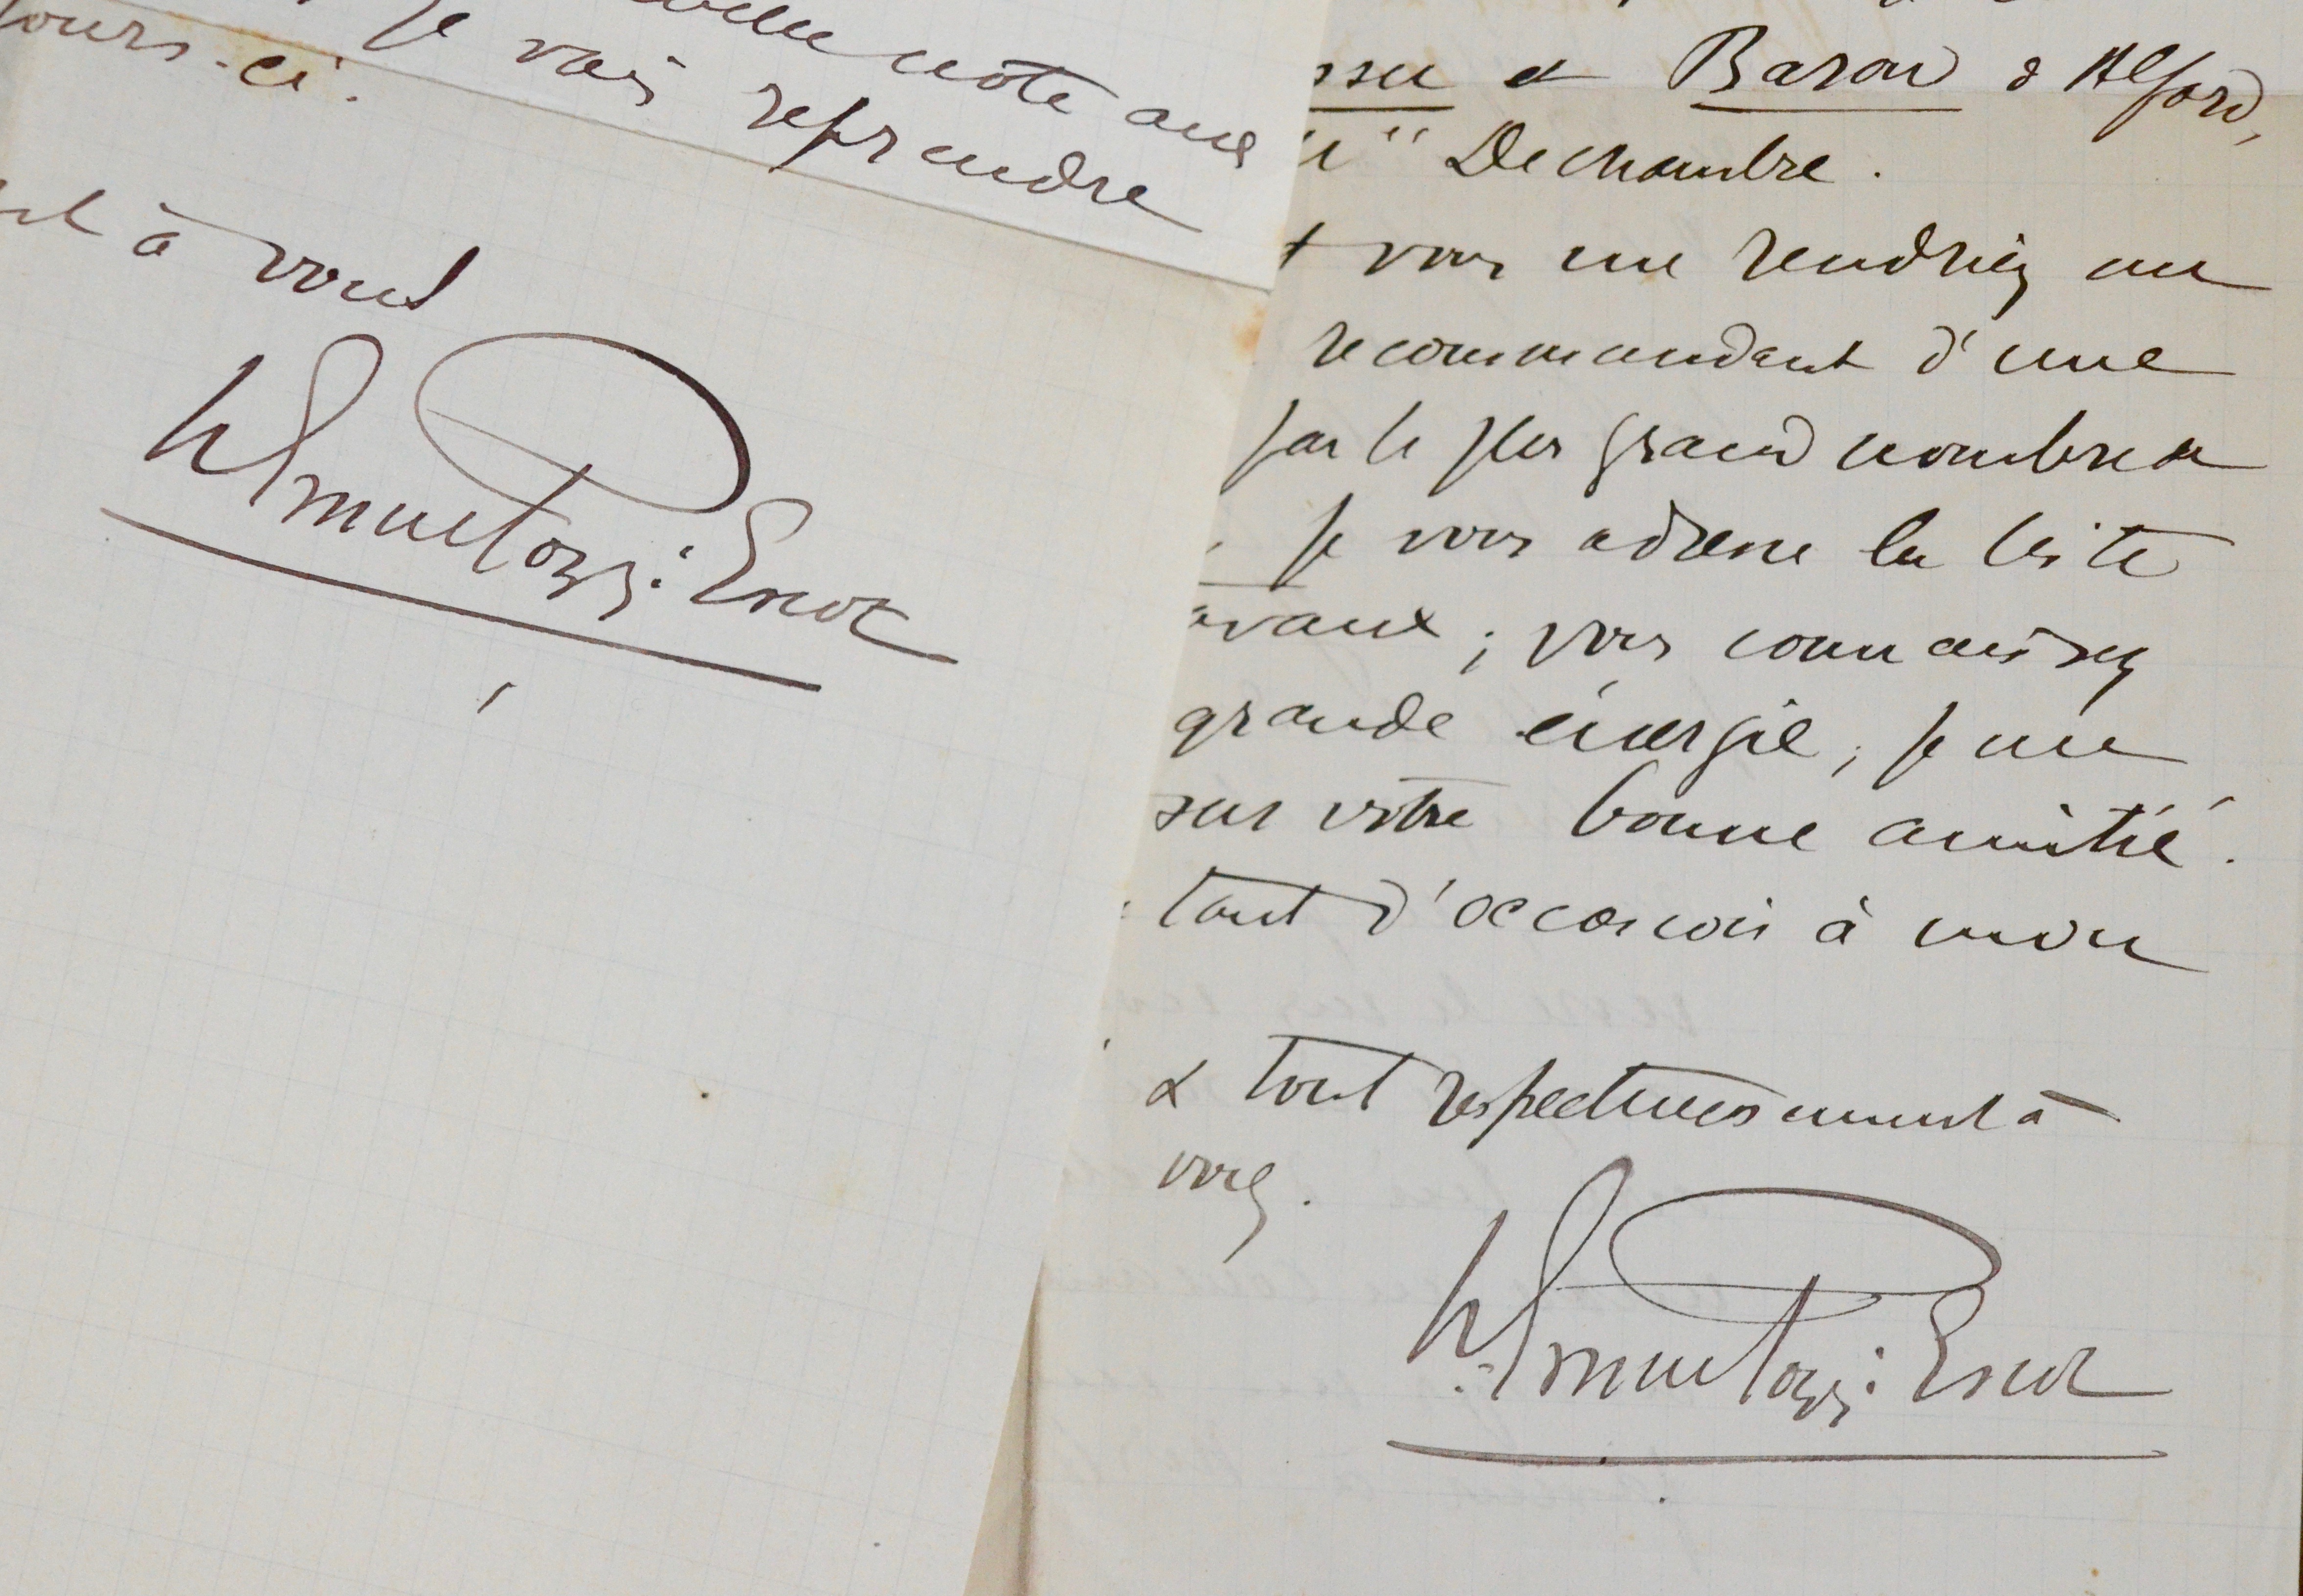 note
jours-ci. Je vais reprendre
à vous
Emm Pozzi-Escot
et Baron d'Alford,
Dechambre.
vous me rendriez un
recommandant d'une
par le plus grand nombre de
je vous adresse la liste
; vous connaissez
grande énergie, je me
sur votre bonne amitié.
tant d'occasions à mon
& tout respectueusement à
vous.
Emm Pozzi-Escot